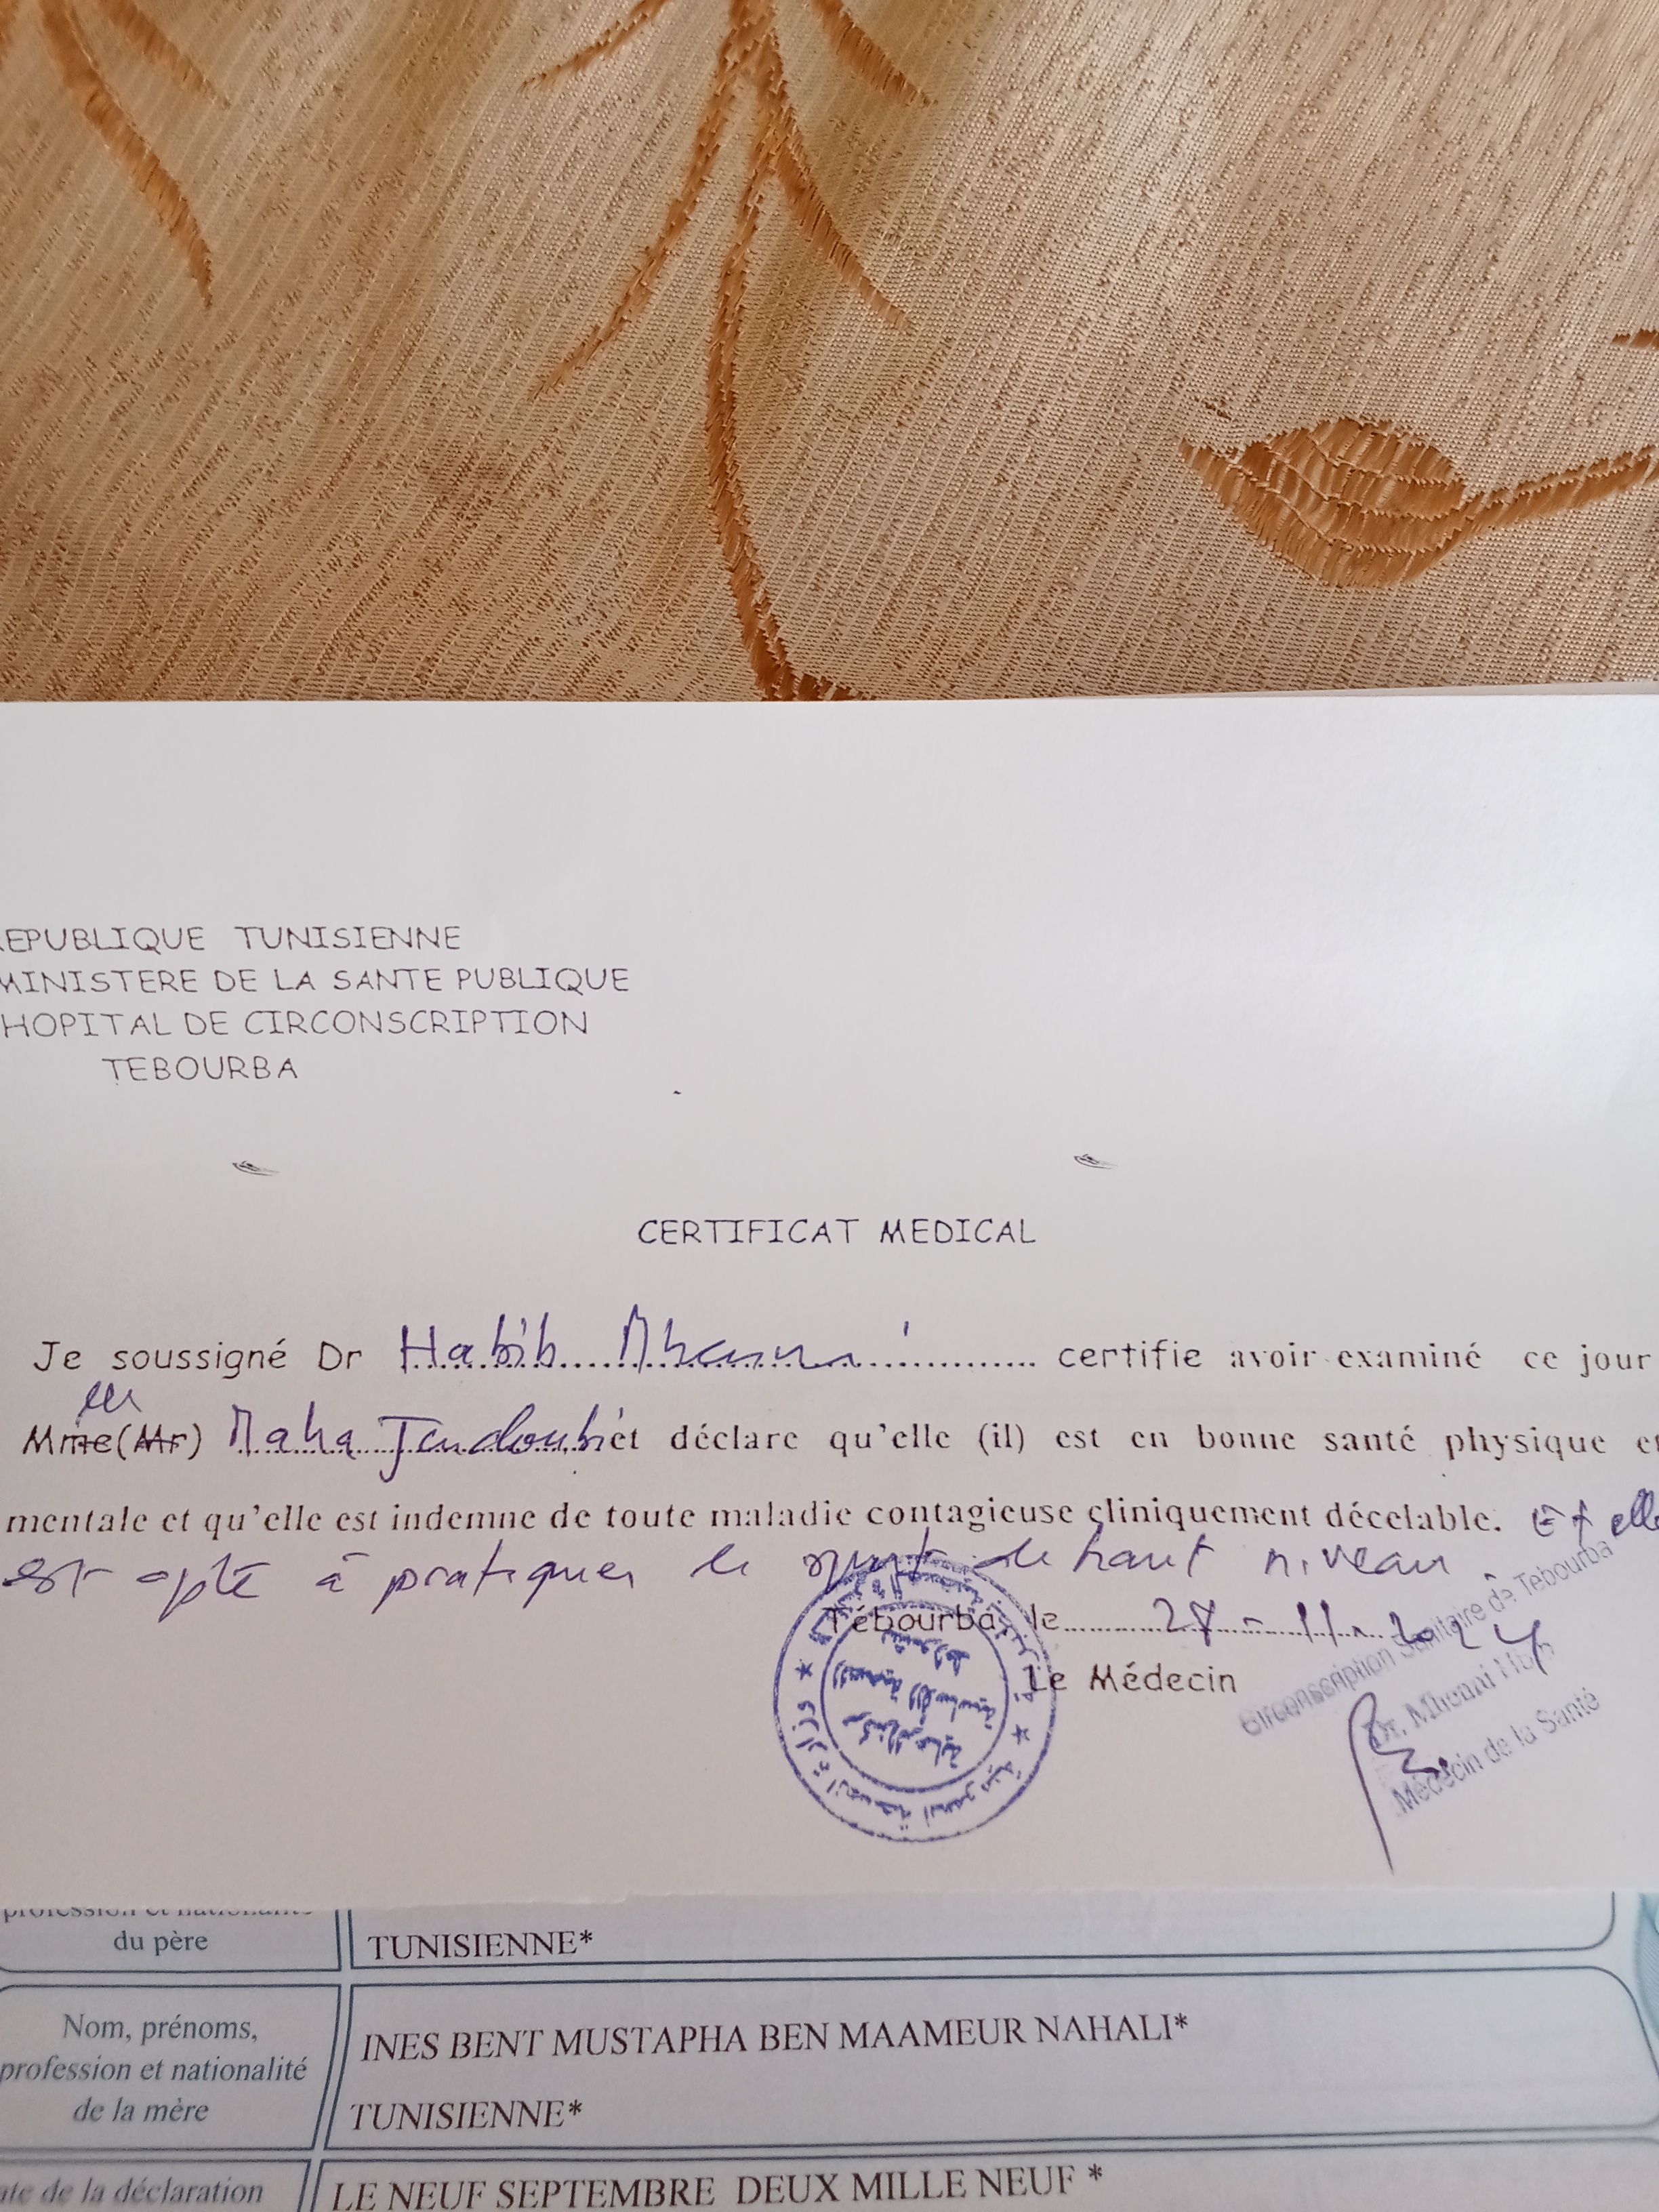 REPUBLIQUE TUNISIENNE
MINISTERE DE LA SANTE PUBLIQUE
HOPITAL DE CIRCONSCRIPTION
TEBOURBA
CERTIFICAT MEDICAL
Je soussigné Dr Habib Mhenni certifie avoir examiné ce jour
elle
Mme (Mr) Maha Jendoubi et déclare qu'elle (il) est en bonne santé physique et
mentale et qu'elle est indemne de toute maladie contagieuse cliniquement décelable. Et elle
est apte à pratiquer le sport de haut niveau
Tébourba, le 11 2024
Le Médecin
Circonscription Sanitaire de Tebourba
Dr.
Médecin de la Santé
du père
TUNISIENNE*
Nom, prénoms,
profession et nationalité
de la mère
INES BENT MUSTAPHA BEN MAAMEUR NAHALI*
TUNISIENNE*
ate de la déclaration
LE NEUF SEPTEMBRE DEUX MILLE NEUF *